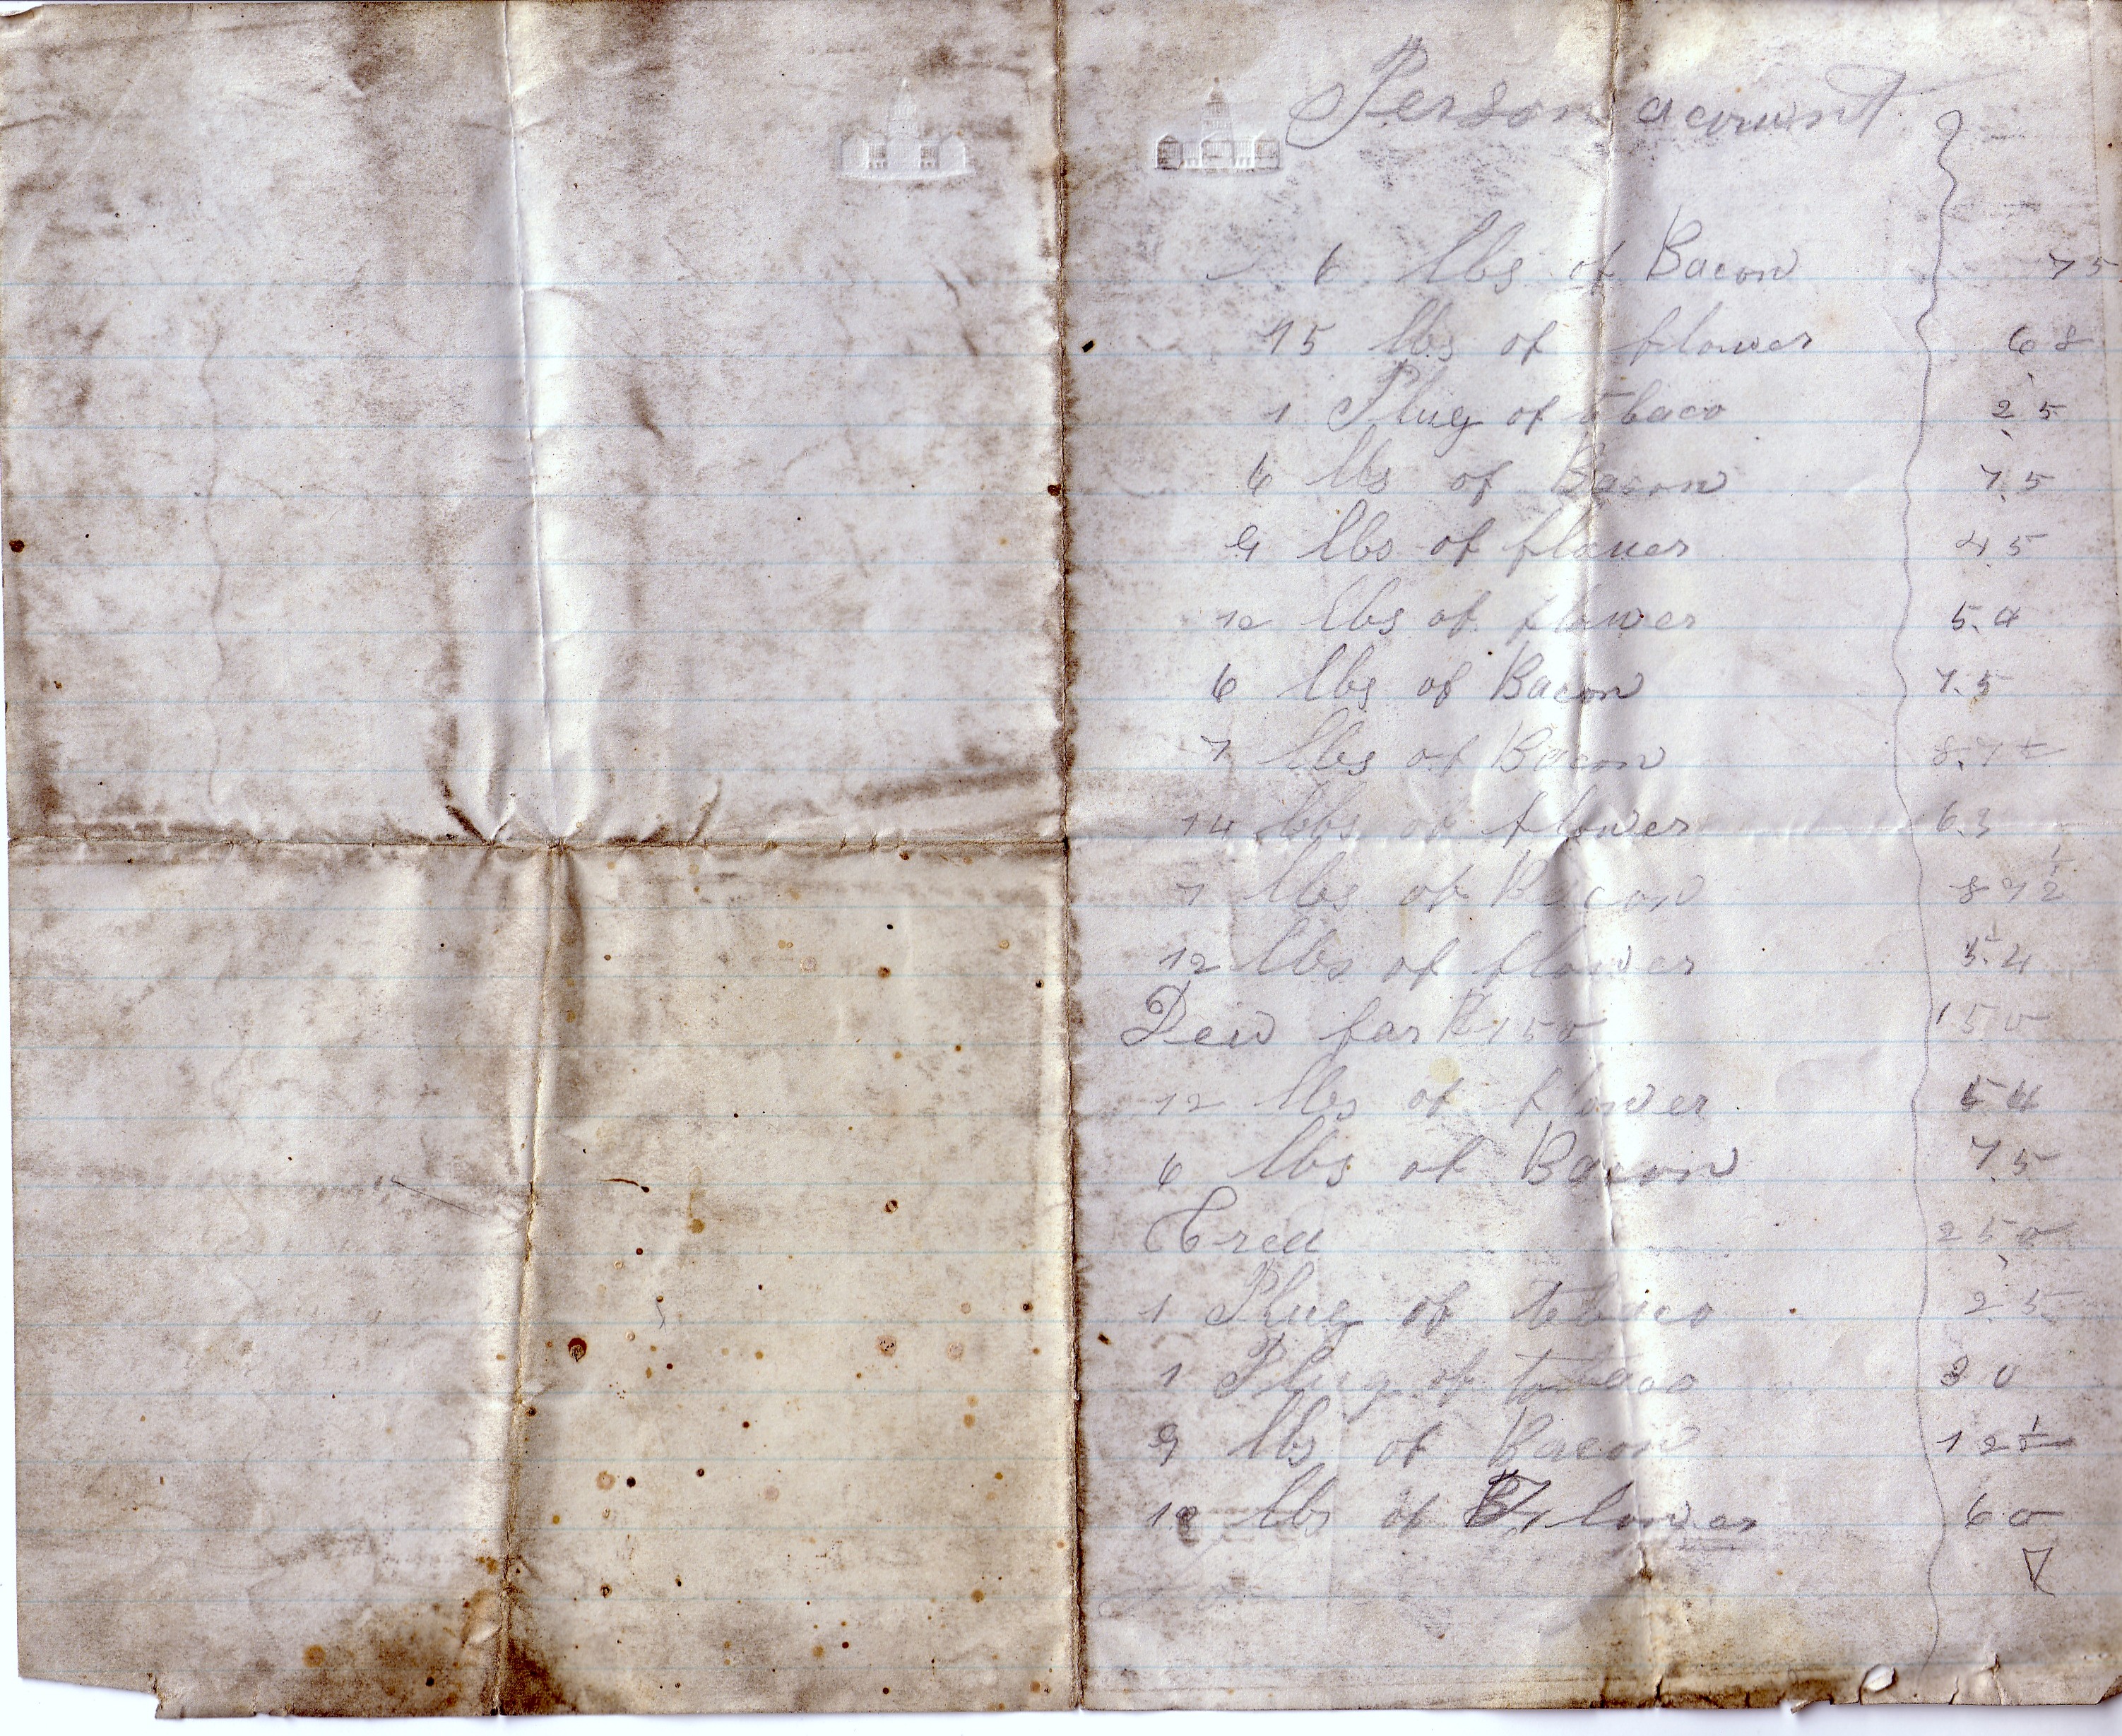 Person acount
6 lbs of Bacon 75
15 lbs of flower 68
1 Plug of tobaco 25
6 lbs of Bacon 75
9 lbs of flower 45
12 lbs of flower 54
6 lbs of Bacon 75
7 lbs of Bacon 87½
14 lbs of flower 63
7 lbs of Bacon 87½
12 lbs of flower 54
Dew for 150 150
12 lbs of flower 54
6 lbs of Bacon 75
Cred 250
1 Plug of tobaco 25
1 Plug of tobaco 30
9 lbs of Bacon 12½
lbs of Flower 60